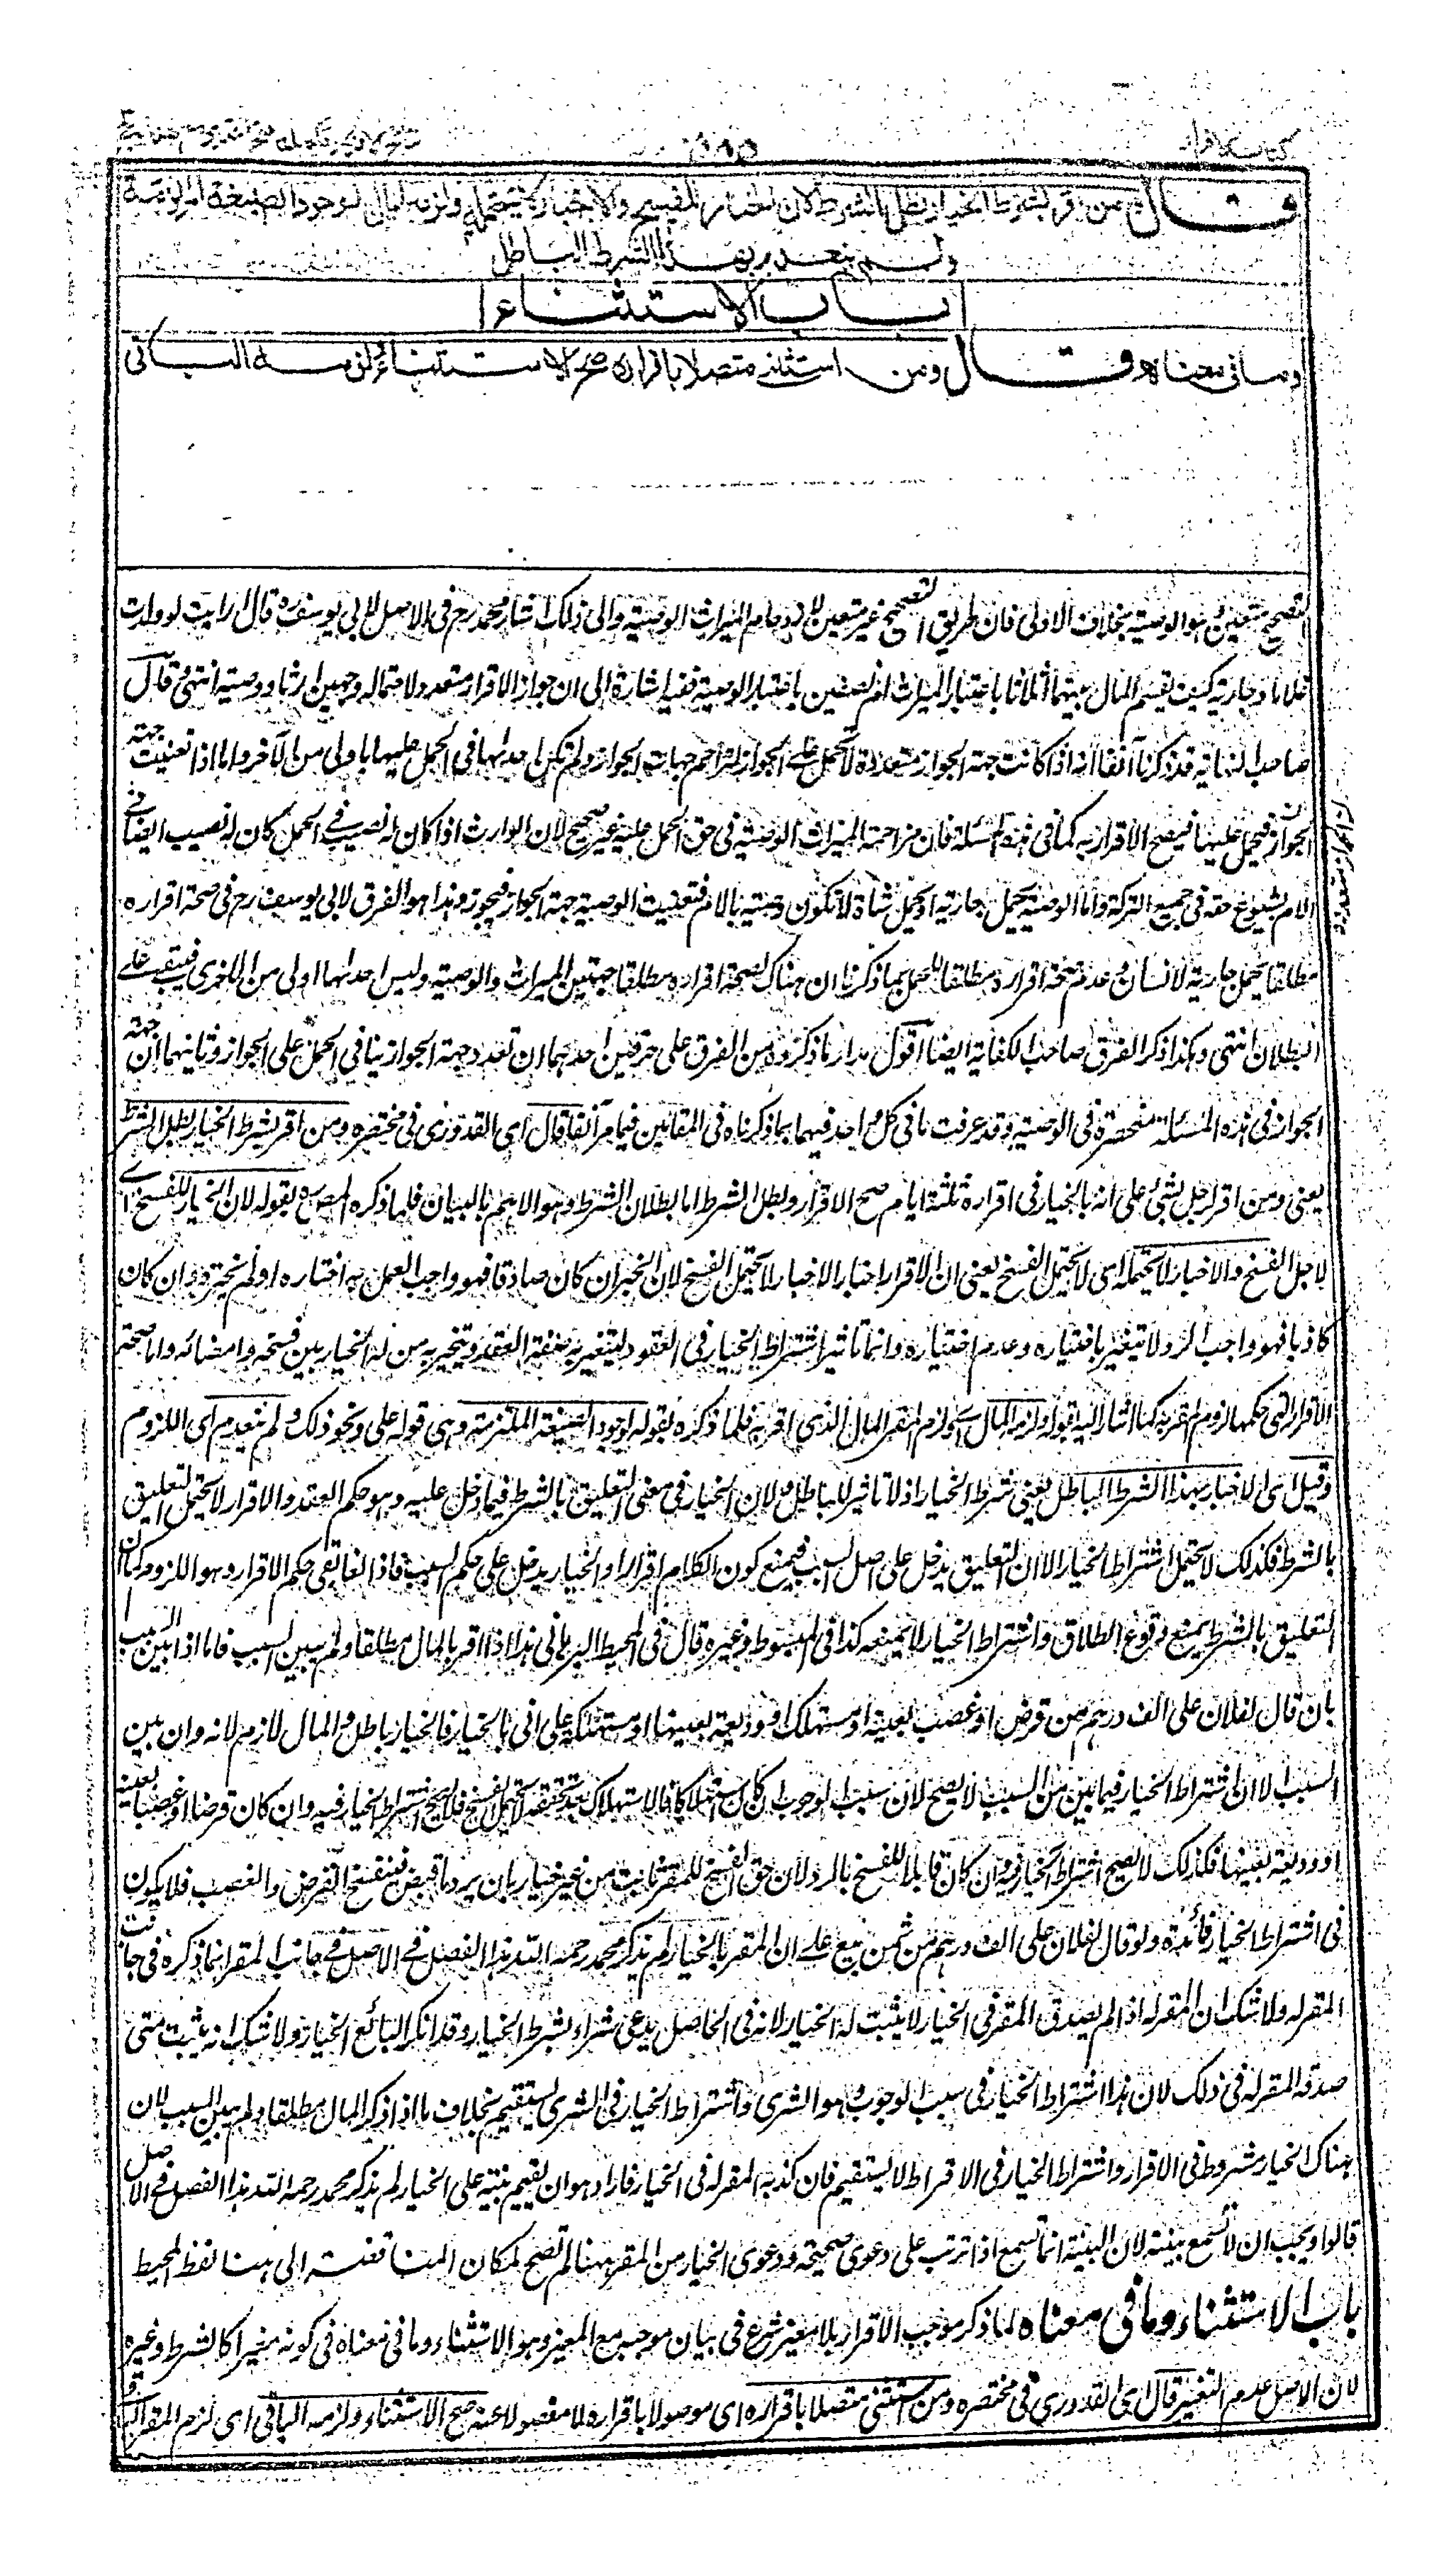 كتاب الاقرار
قال ومن اقر بشرط الخيار بطل الشرط لان الخيار للفسخ والاخبار لا يحتمله ولزمه المال لوجود الصيغة الملزمة
ولم ينعدم بهذا الشرط الباطل
باب الاستثناء
وما في معناه قال ومن استثنى متصلا باقراره صح الاستثناء ولزمه الباقي
التصحيح متعين وهو الوصية بخلاف الاولى فان طريق التصحيح غير متعين لازدحام الميراث الوصية والى ذلك اشار محمد رح في الاصل لابي يوسف ره قال ارايت لو ولدت
غلاما وجارية كيف يقسم المال بينهما أثلاثا باعتبار الميراث ام نصفين باعتبار الوصية ففيه اشارة الى ان جواز الاقرار متعدد لاحتماله وجهين ارثا ووصية انتهى قال
صاحب النهاية قد ذكرنا آنفا انه اذا كانت جهة الجواز متعددة لا تحمل على الجواز لتزاحم جهات الجواز ولم تكن احدلها في الحمل عليها باولى من الآخر واما اذا تعينت جهة
الجواز فيحمل عليها فيصح الاقرار به كما في هذه المسئلة فان مزاحمة الميراث الوصية في حق الحمل عليه غير صحيح لان الوارث اذا كان له نصيب في الحمل كان له نصيب ايضا في
الام لشيوع حقه في جميع التركة واما الوصية بحمل جارية او بحمل شاة لا تكون وصية بالام فتعينت الوصية جهة الجواز فيجوز وهذا هو الفرق لابي يوسف رح في صحة اقراره
مطلقا بحمل جارية لانسان وعدم صحة اقراره مطلقا للحمل بما ذكرنا ان هناك لصحة اقراره مطلقا جهتين الميراث والوصية وليس احدلهما اولى من الاخرى فيبقى على
البطلان انتهى وهكذا ذكر الفرق صاحب الكفاية ايضا اقول مدار ما ذكروه من الفرق على حرفين احدهما ان تعدد جهة الجواز ينافي الحمل على الجواز وثانيهما ان جهة
الجواز في هذه المسئلة منحصرة في الوصية وقد عرفت ما في كل واحد فيهما بما ذكرناه في المقامين فيما مر آنفا قال اى القدوري في مختصره ومن اقر بشرط الخيار بطل الشرط
يعني ومن اقر لرجل بشئ على انه بالخيار في اقراره ثلثة ايام صح الاقرار وبطل الشرط اما بطلان الشرط وهو الاهم بالبيان فلما ذكره المص ره بقوله لان الخيار للفسخ اے
لاجل الفسخ والاخبار لا يحتمله اى لا يحتمل الفسخ يعنى ان الاقرار اخبار والاخبار لا يحتمل الفسخ لان الخبر ان كان صادقا فهو واجب العمل به اختاره او لم يختره وان كان
كاذبا فهو واجب الرد لا يتغير باختياره وعدم اختياره وانما تاثير اشتراط الخيار في العقود ليتغير به صفة العقد ويتخير به من له الخيار بين فسخه وامضائه واما صحة
الاقرار التى حكمها لزوم المقر به كما اشار اليه بقوله ولزمه المال اى ولزم المقر المال الذى اقر به فلما ذكره بقوله لوجود الصيغة الملتزمة وهي قوله على ونحو ذلك ولم ينعدم اى اللزوم
وقيل اى الاخبار بهذا الشرط الباطل يعني شرط الخيار اذ لا تاثير للباطل ولان الخيار في معنى التعليق بالشرط فيما دخل عليه وهو حكم العقد والاقرار لا يحتمل التعليق
بالشرط فكذلك لا يحتمل اشتراط الخيار الا ان التعليق يدخل على اصل السبب فيمنع كون الكلام اقرارا والخيار يدخل على حكم السبب فاذا لغا بقى حكم الاقرار وهو اللزوم كما ان
التعليق بالشرط يمنع وقوع الطلاق واشتراط الخيار لا يمنعه كذا في المبسوط وغيره قال في المحيط البرهانى هذا اذا اقر بالمال مطلقا ولم يبين السبب فاما اذا بين السبب
بان قال لفلان على الف درهم من قرض او غصب بعينه او مستهلك او وديعة بعينها او مستهلكة على انى بالخيار فالخيار باطل والمال لازم لانه وان بين
السبب الا ان اشتراط الخيار فيما بين من السبب لا يصح لان سبب الوجوب ان كان استهلاكا فالاستهلاك بعد تحققه لا يحتمل الفسخ فلا يصح اشتراط الخيار فيه وان كان قرضا او غصبا بعينه
او وديعة بعينها فكذلك لا يصح اشتراط الخيار فيه وان كان قابلا للفسخ بالرد لان حق الفسخ للمقر ثابت من غير خيار بان يرد ما قبض فينفسخ القرض والغصب فلا يكون
في اشتراط الخيار فائدة ولو قال لفلان على الف درهم من ثمن بيع على ان المقر بالخيار لم يذكر محمد رحمه الله هذا الفصل في الاصل في جانب المقر انما ذكره في جانب
المقر له ولا شك ان المقر له اذا لم يصدق المقر في الخيار لا يثبت له الخيار لانه في الحاصل يدعى شراء بشرط الخيار وقد انكر البائع الخيار ولا شك انه يثبت متى
صدقه المقر له في ذلك لان هذا اشتراط الخيار في سبب الوجوب وهو الشرى واشتراط الخيار في الشرى يستقيم بخلاف ما اذا ذكر المال مطلقا ولم يبين السبب لان
هناك الخيار مشروط في الاقرار واشتراط الخيار في الاقرار لا يستقيم فان كذبه المقر له في الخيار فاراد هو ان يقيم بينة على الخيار لم يذكر محمد رحمه الله هذا الفصل في الاصل
قالوا ويجب ان لا تسمع بينة لان البينة انما تسمع اذا ترتب على دعوى صحيحة ودعوى الخيار من المقر ههنا لم تصح لمكان المناقضة الى هنا لفظ المحيط
باب الاستثناء وما في معناه لما ذكر موجب الاقرار بلا مغير شرع في بيان موجبه مع المغير وهو الاستثناء وما في معناه في كونه مغيرا كالشرط وغيره
لان الاصل عدم التغير قال اى القدوري في مختصره ومن استثنى متصلا باقراره اى موصولا باقراره لا مفصولا عنه صح الاستثناء ولزمه الباقي اى لزم المقر الباقي